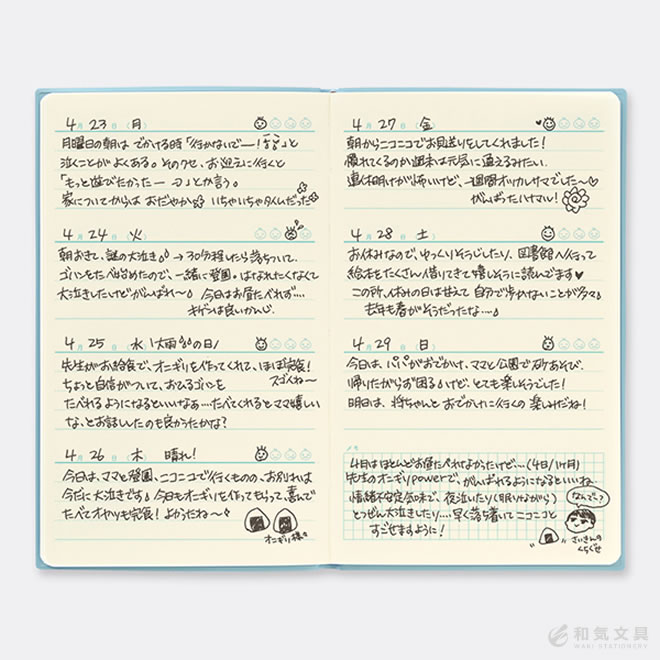 4月23日(月)
月曜日の朝は でかける時「行かないでー!」と
泣くことがよくある。そのクセ、お迎えに行くと
「もっと遊びたかったー」とか言う。
家についてからは おだやか いちゃいちゃタイムだった
4月24日(火)
朝おきて、謎の大泣き → 30分程したら落ちついて、
ゴハンをたべ始めたので、一緒に登園。はなれたくなくて
大泣きしたけどがんばれ〜 今日はお昼たべれず…
キゲンは良いかんじ
4月25日 水 (大雨の日)
先生がお給食で、オニギリを作ってくれて、ほぼ完食!
スゴイね〜
ちょっと自信がついて、おひるゴハンを
たべれるようになるといいなぁ…たべてくれるとママ嬉しい
な、とお話したのも良かったかな?
4月26日 木 晴れ!
今日は、ママと登園、ニコニコで行くものの、お別れは
今だに大泣きです 今日もオニギリを作ってもらって、喜んで
たべてオヤツも完食! よかったね〜
オニギリ様
4月27日(金)
朝からニコニコでお見送りをしてくれました!
慣れてくるのか週末は元気に通えるみたい。
連休明けが怖いけど、一週間オツカレサマでした〜♡
がんばったハナマル!
4月28日 土
お休みなので、ゆっくりそうじしたり、図書館へ行って
絵本をたくさん借りてきて嬉しそうに読んでます♥
この所、休みの日は甘えて 自分で歩かないことが多々
去年も春がそうだったな…
4月29日 日
今日は、パパがおでかけ、ママと公園で砂あそび、
帰りたがらず困るけど、とても楽しそうでした!
明日は、将ちゃんと おでかけに行くの 楽しみだね!
4月はほとんどお昼たべれなかったけど…(4日/1ヶ月)
先生のオニギリpowerで、がんばれるようになるといいね
情緒不安定気味で、夜泣いたり(眠りながら)
とつぜん大泣きしたり…早く落ち着いてニコニコと
すごせますように!
なんで〜?
さいきんの
くちぐせ
和気文具
WAKI STATIONERY